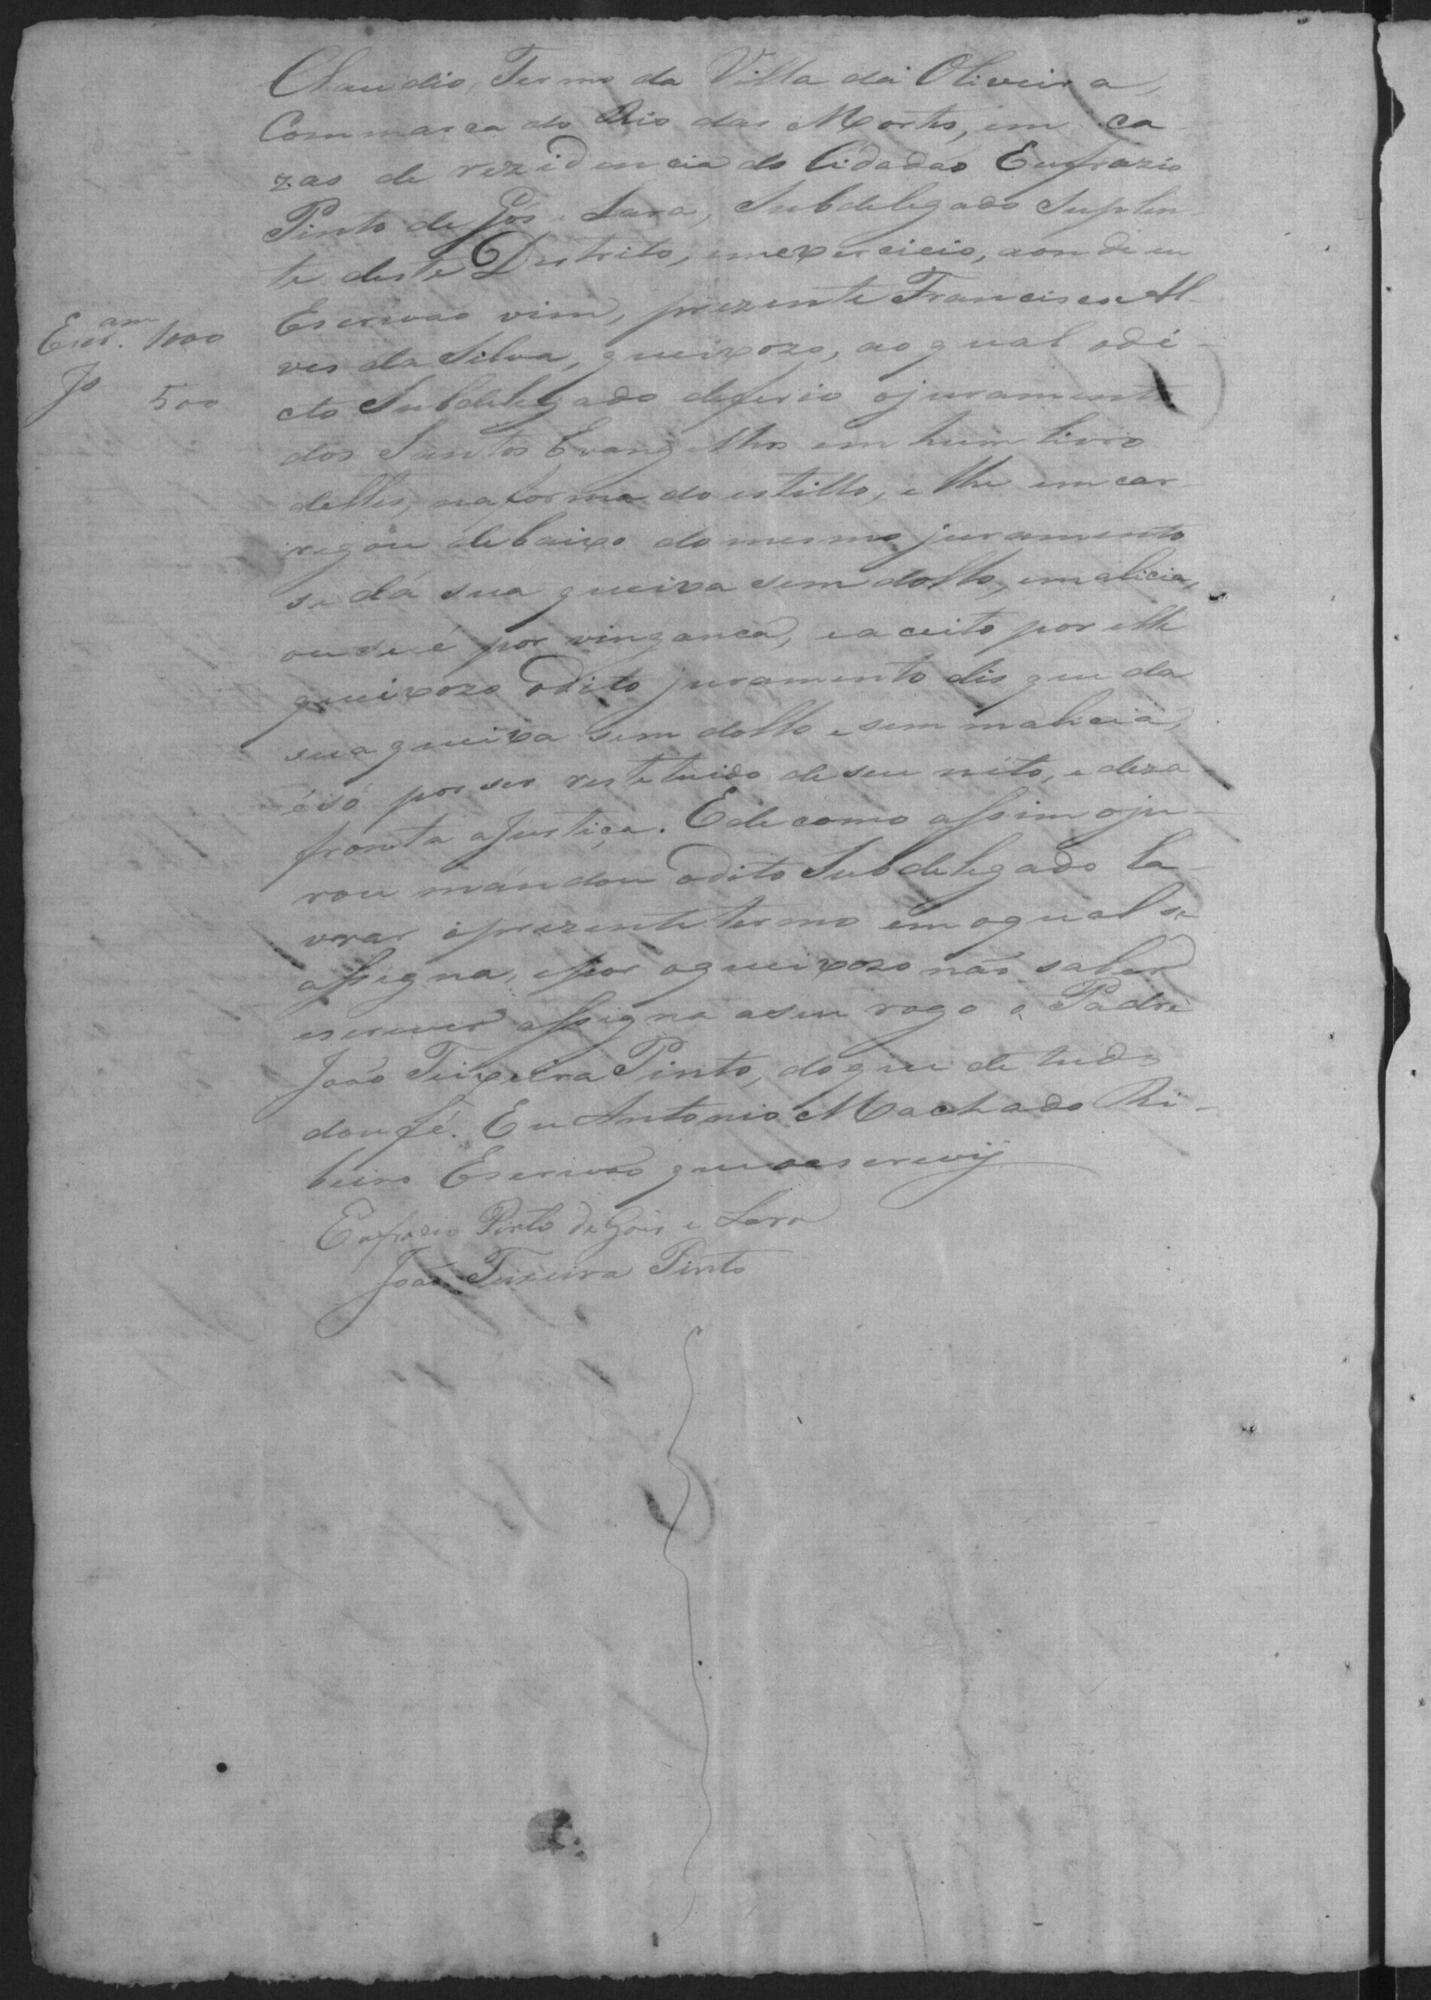 Claudio, Termo da Villa da Oliveira,
Commarca do Rio das Mortes, em ca
zas de rezidencia do Cidadão Eufrazio
Pinto de Gós e Lara, Subdelegado Suplen-
te deste Destrito, emexercicio, aonde eu
Escrivão vim, prezente Francisco Al-
ves da Silva, queixozo, ao qual odi-
cto Subdelegado deferio ojuramento
dos Santos Evangelhos em hum livro
delles, naforma do estillo, e lhe emcar-
regou debaixo domesmo juramento
se dá sua queixa sem dollo, emalicia,
ouse é por vingança, eaceito por elle
queixozo odito juramento dis que da
sua queixa sem dollo e sem malicia,
ésó por ser restetuido de seu , e deza
fronta aJustiça. Ede como assim oju-
rou mandou odito Subdelegado la-
vrar oprezente termo em oqual se
assigna, epor oqueixozo não saber
escrever assigna aseu rogo o Padre
João Teixeira Pinto, doque de tudo
dou fé. Eu Antonio Machado Ri-
beiro Escrivão queoescrevij
Eufrazio Pinto de Gois e Lara
João Teixeira Pinto
Escr.am 1000
Jo 500